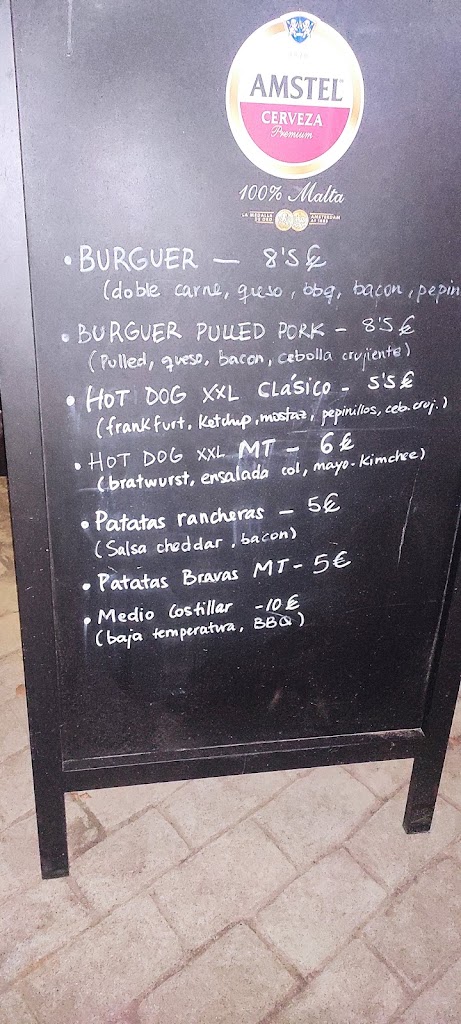 AMSTEL
CERVEZA
Premium
100% Malta
LA MEDALLA DE ORO AMSTERDAM
• BURGUER — 8'5 €
(doble carne, queso, bbq, bacon, pepin
• BURGUER PULLED PORK - 8'5 €
(Pulled, queso, bacon, cebolla crujiente)
• HOT DOG XXL CLÁSICO - 5'5 €
(frankfurt, Ketchup, mostaz, pepinillos, ceb. cruj.)
• HOT DOG XXL MT - 6 €
(bratwurst, ensalada col, mayo-Kimchee)
• Patatas rancheras — 5€
(Salsa cheddar, bacon)
• Patatas Bravas MT - 5€
• Medio Costillar -10 €
(baja temperatura, BBQ)